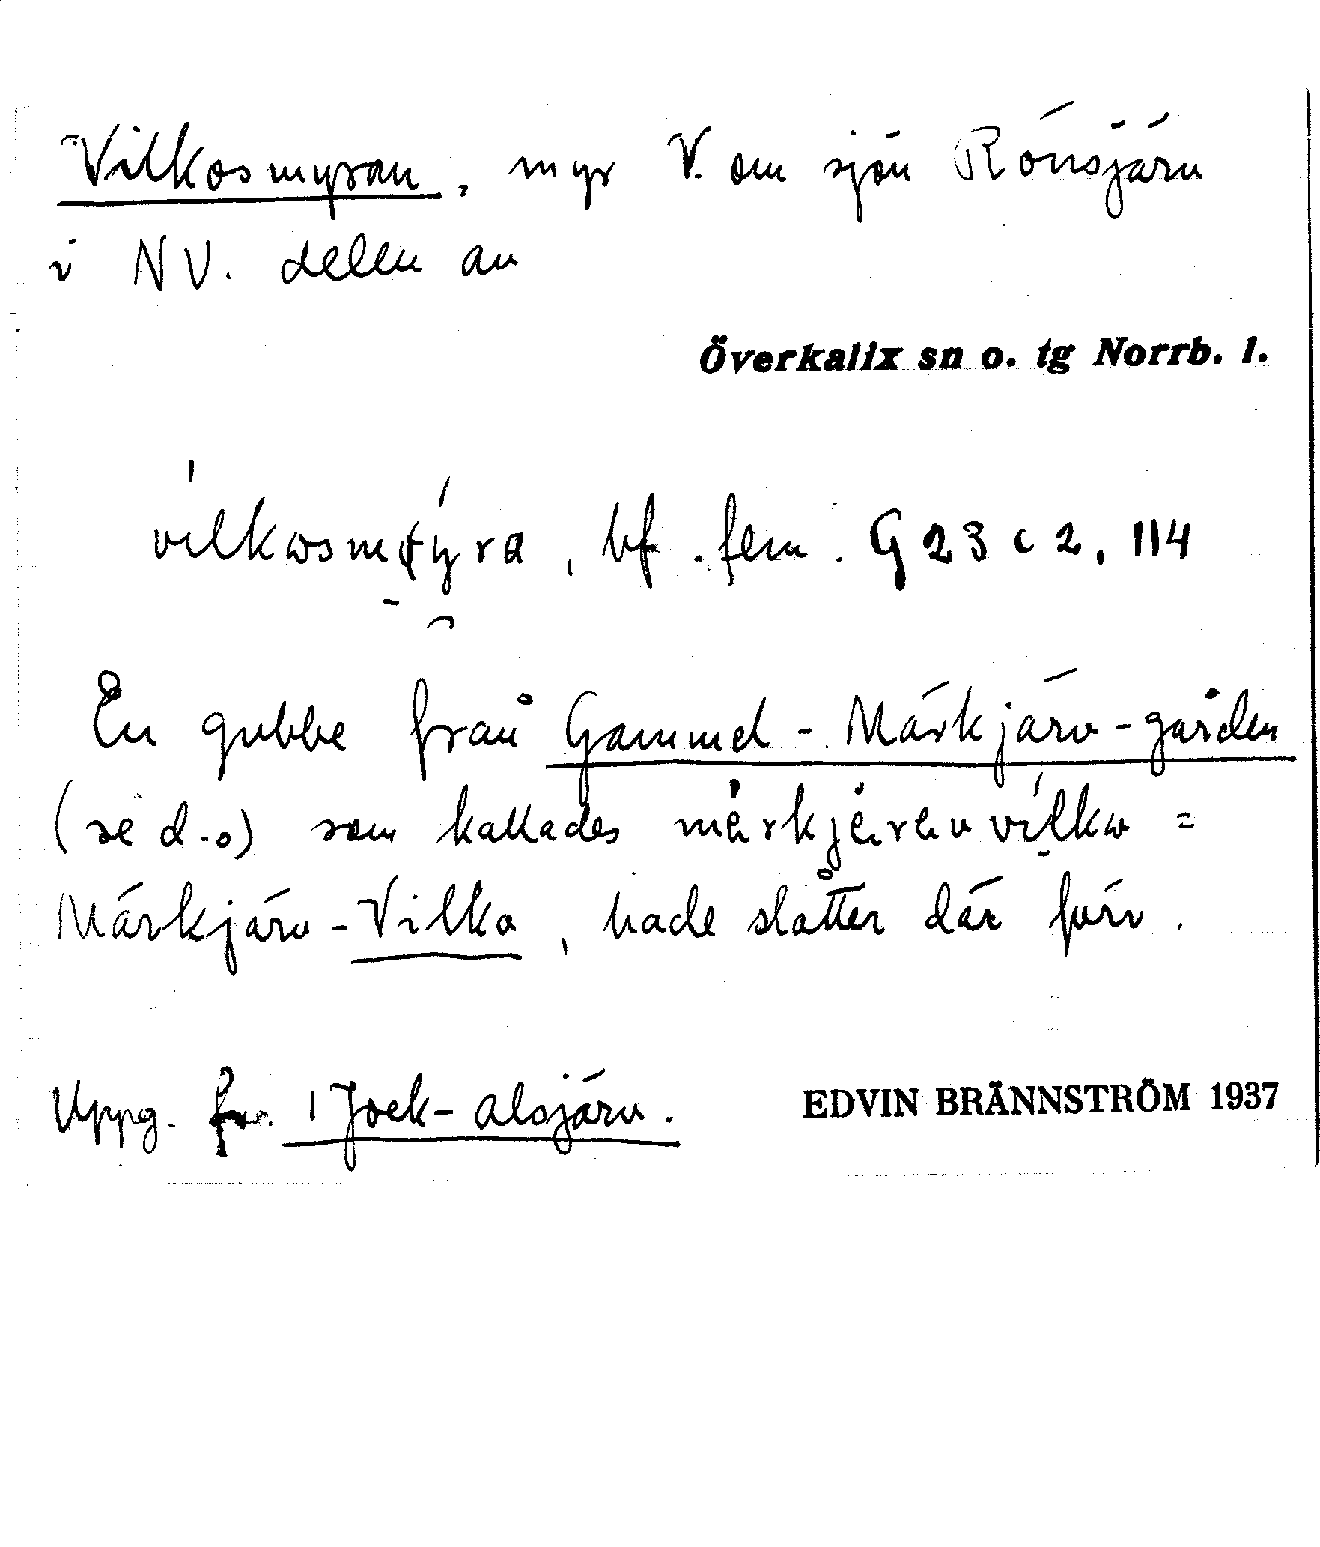 Vilkosmyran, myr V. om sjön Rönsjärv
i NV. delen av
Överkalix sn o. tg Norrb. l.
bf. fem. G 23 c 2, 114
En gubbe från Gammel-Märkjärv-gården
(se d.o) som kallades =
Märkjärv-Vilko, hade slåtter där förr.
Uppg. fr. Jock-alsjärv.
EDVIN BRÄNNSTRÖM 1937